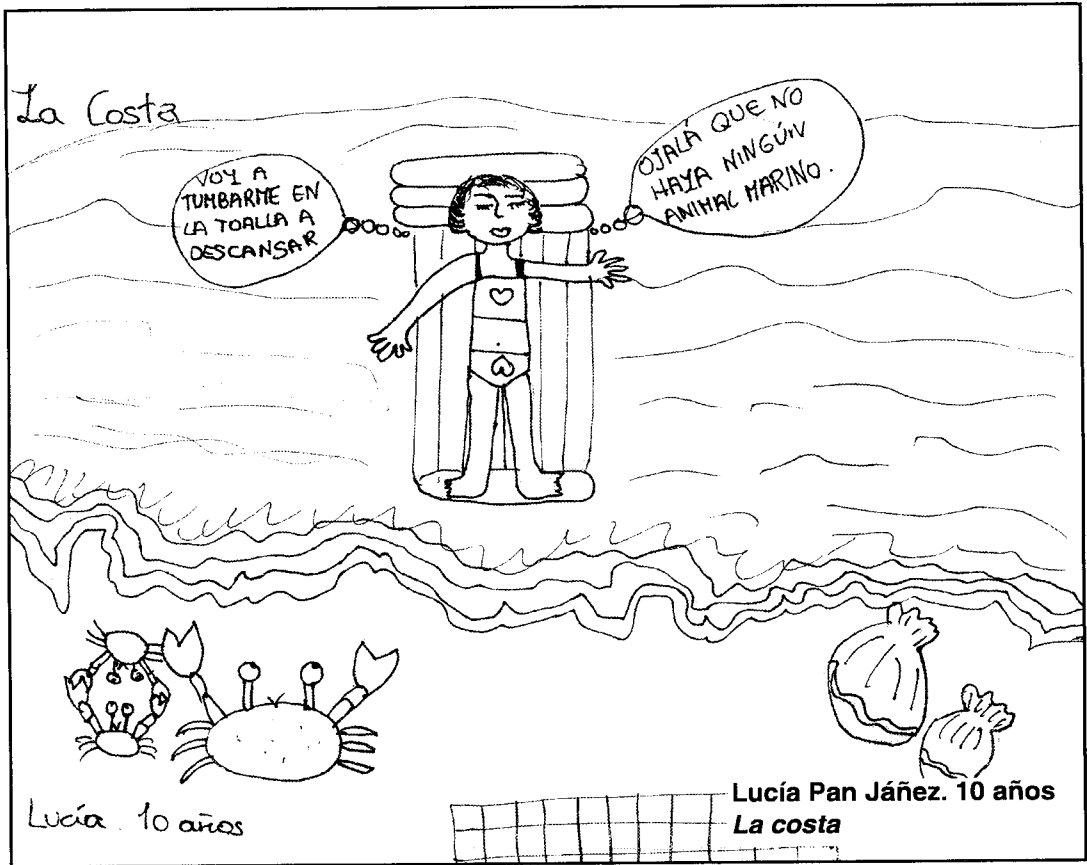 La Costa
VOY A
TUMBARME EN
LA TOALLA A
DESCANSAR
OJALÁ QUE NO
HAYA NINGÚN
ANIMAL MARINO.
Lucía. 10 años
Lucía Pan Jáñez. 10 años
La costa